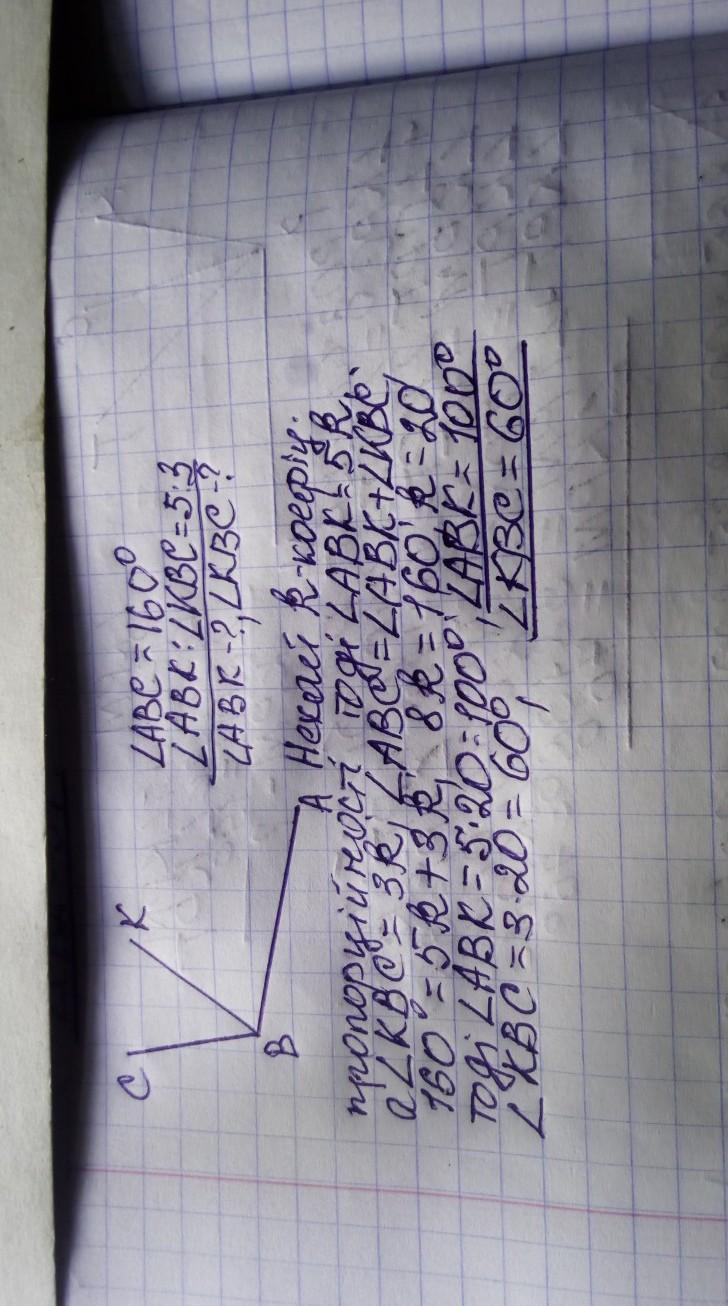 ∠ABC = 160°
∠ABK : ∠KBC = 5:3
∠ABK - ?, ∠KBC - ?
C
K
B
A
Нехай k-коефіц.
пропорційності тоді ∠ABK = 5k,
а ∠KBC = 3k, ∠ABC = ∠ABK + ∠KBC,
160° = 5k + 3k, 8k = 160, k = 20,
тоді ∠ABK = 5·20 = 100°, ∠ABK = 100°
∠KBC = 3·20 = 60°, ∠KBC = 60°